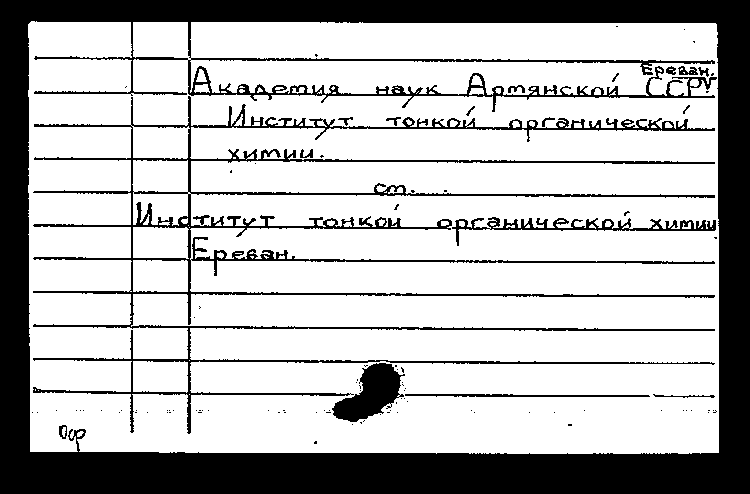 Ереван.
Академия наук Армянской ССР
Институт тонкой органической
химии.
см.
Институт тонкой органической химии
Ереван.